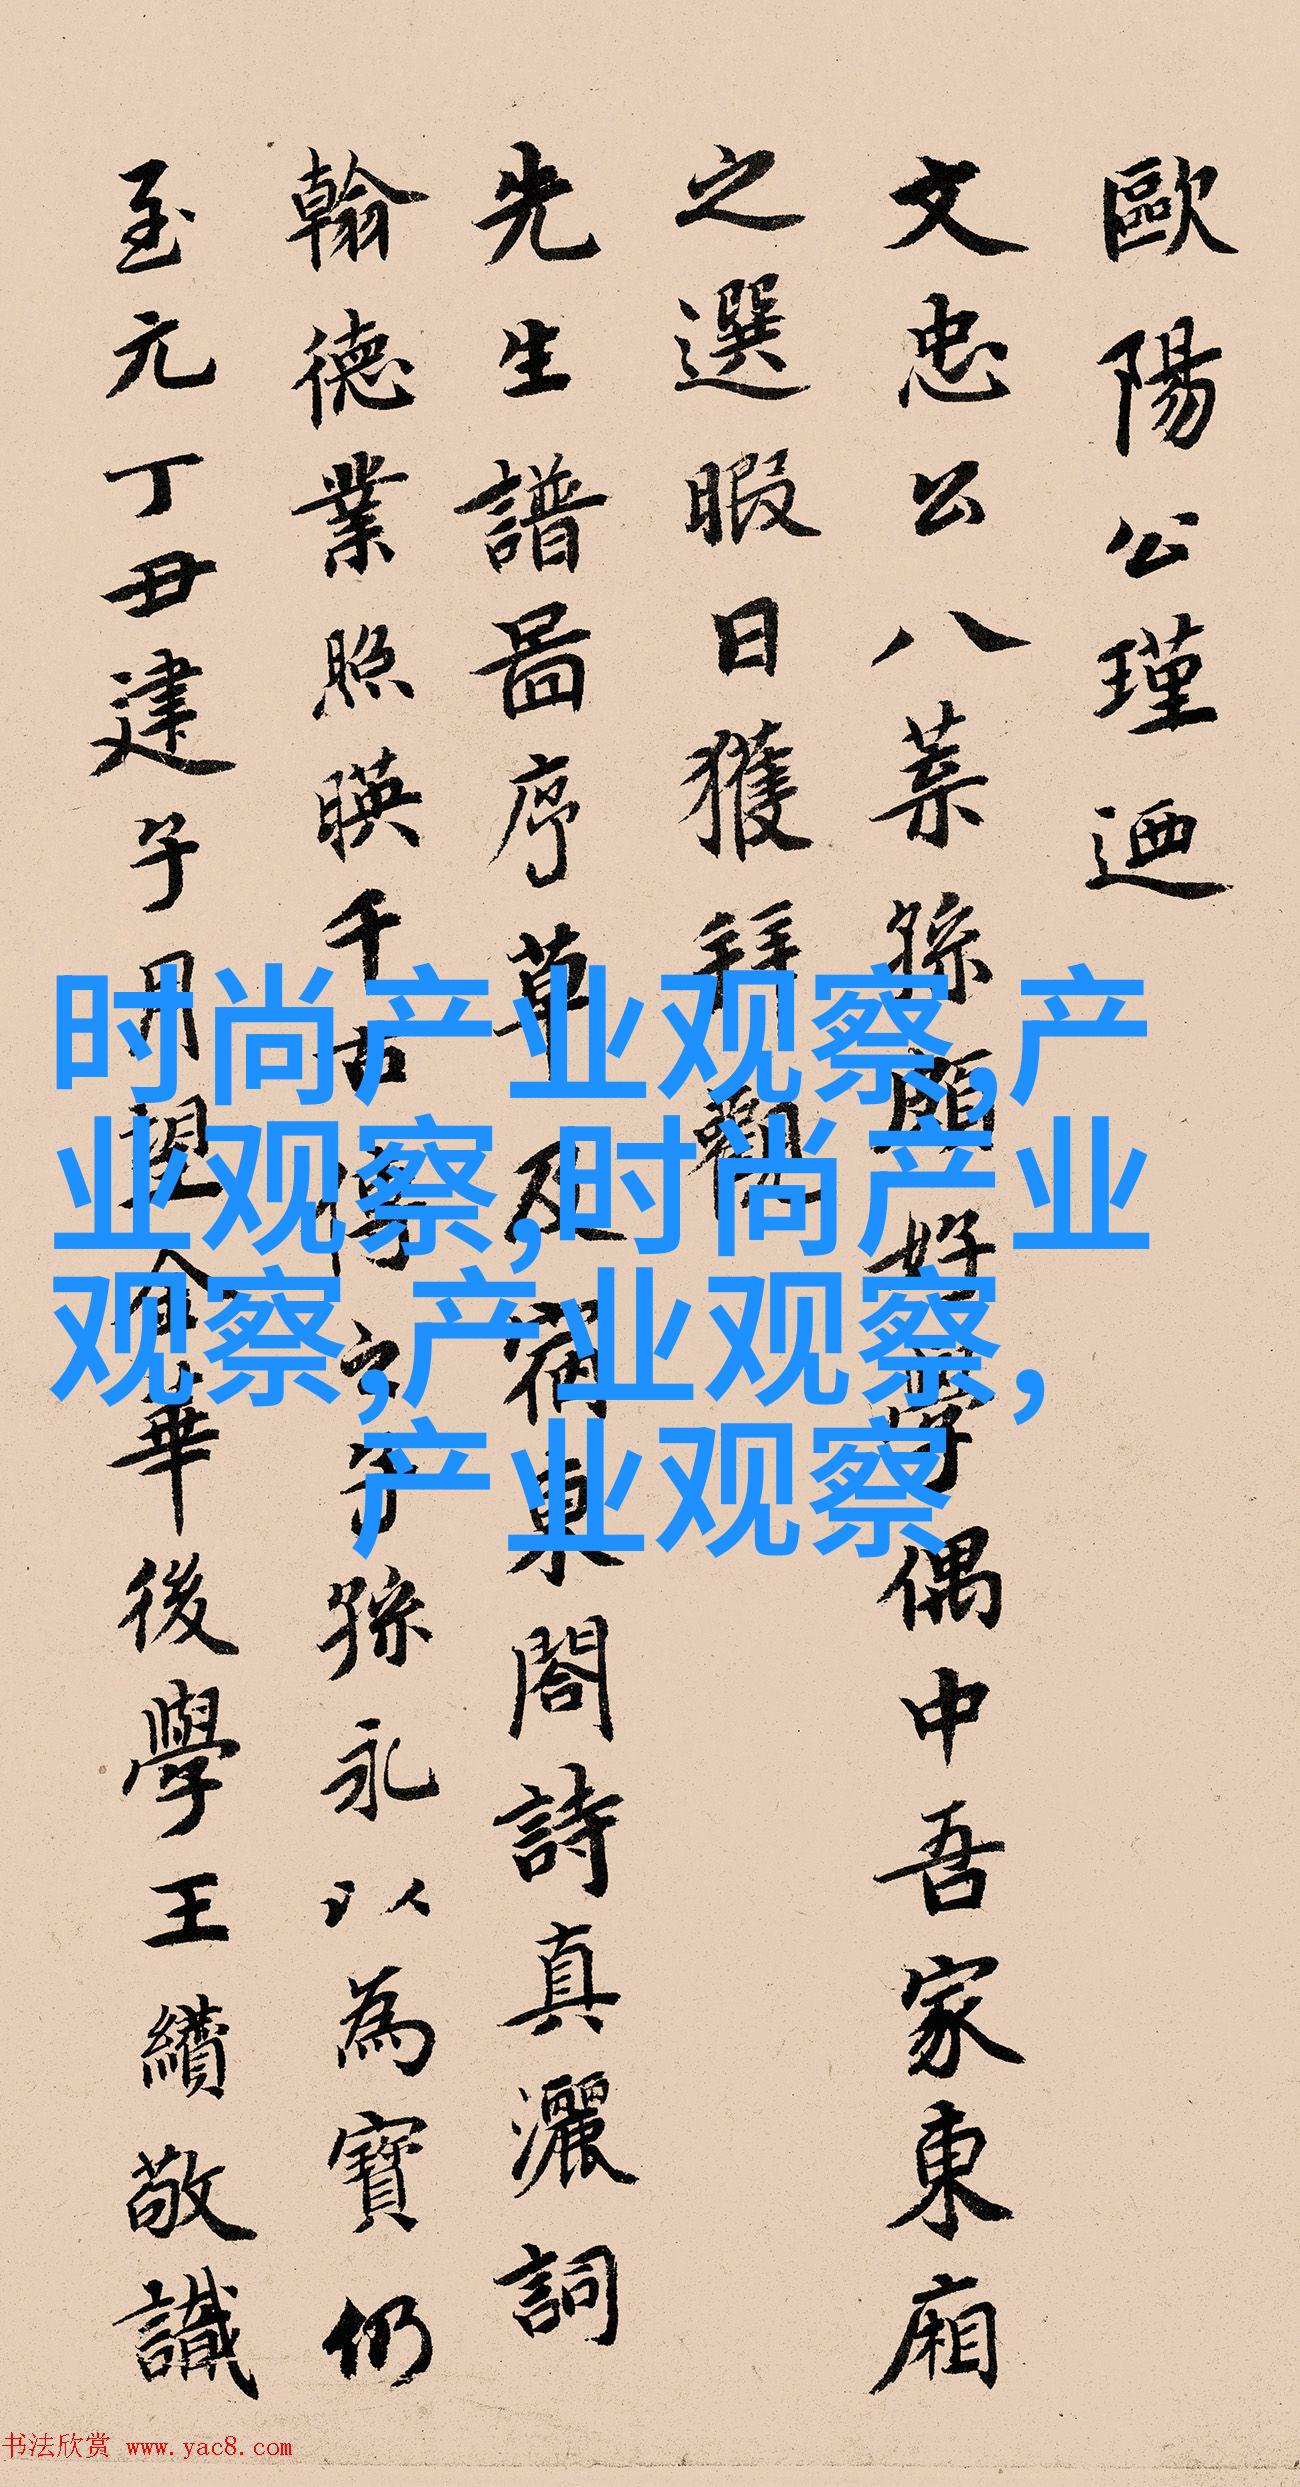 歐陽公瑾迺
文忠公八葉孫頗好學偶中吾家東廂
之選暇日獲拜觀
先生譜圖序草及宿東閣詩真灑詞
翰德業照暎千古傳之子孫永以為寶仍
至元丁丑建子月望金華後學王纘敬識
时尚产业观察,产
业观察,时尚产业
观察,产业观察,
产业观察
书法欣赏 www.yac8.com